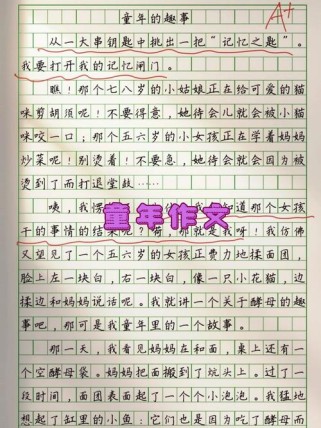 童年的趣事
A+
从一大串钥匙中挑出一把“记忆之匙”。
我要打开我的记忆闸门。
瞧！那个七八岁的小姑娘正在给可爱的猫
咪剪胡须呢！不要得意，她待会儿就会被小猫
咪咬一口；那个五六岁的小女孩正在学着妈妈
炒菜呢！别烫着！不要急，她待会就会因为被
烫到了而打退堂鼓……
咦，我怎 知道那个女孩
干的事情的结果 ？荷，那就是我呀！我仿佛
童年作文
又望见了一个五六岁的女孩正费力地揉面团，
脸上左一块白，右一块白，像一只小花猫，边
揉边和妈妈说话呢。我就讲一个关于酵母的趣
事吧，那可是我童年里的一个故事。
那一天，我看见妈妈在和面，桌上还有一
个空酵母袋。妈妈把面搬到了炕头上。过了一
段时间，面团表面起了一个个小泡泡。我猛地
想起了缸里的小鱼；它们也是因为吃了酵母而